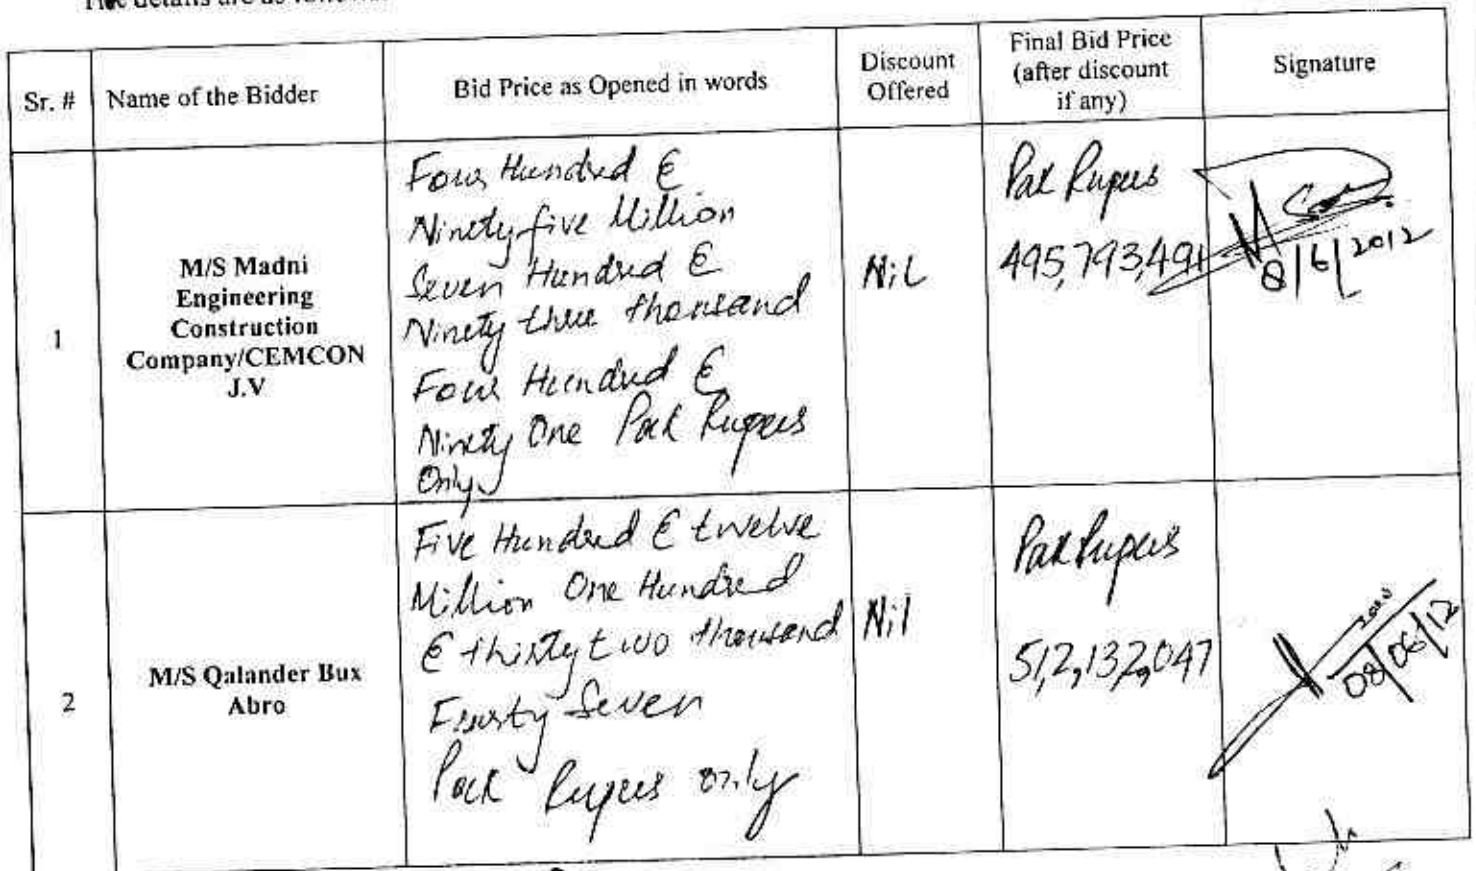 The details are as follows:
Sr. #
Name of the Bidder
Bid Price as Opened in words
Discount
Offered
Final Bid Price
(after discount
if any)
Signature
1
M/S Madni
Engineering
Construction
Company/CEMCON
J.V
Four Hundred &
Ninety five Million
Seven Hundred &
Ninety three thousand
Four Hundred &
Ninety One Pak Rupees
Only
Nil
Pak Rupees
495,793,491
8/6/2012
2
M/S Qalander Bux
Abro
Five Hundred & twelve
Million One Hundred
& thirty two thousand
Fourty Seven
Pack Rupees only
Nil
Pak Rupees
512,132,047
08/06/12